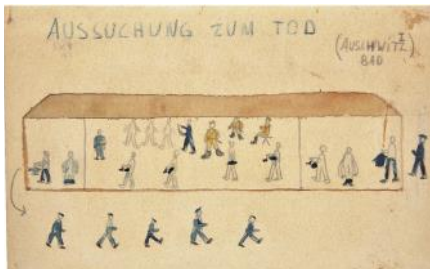 AUSSUCHUNG ZUM TOD
(AUSCHWITZ I
BAD)